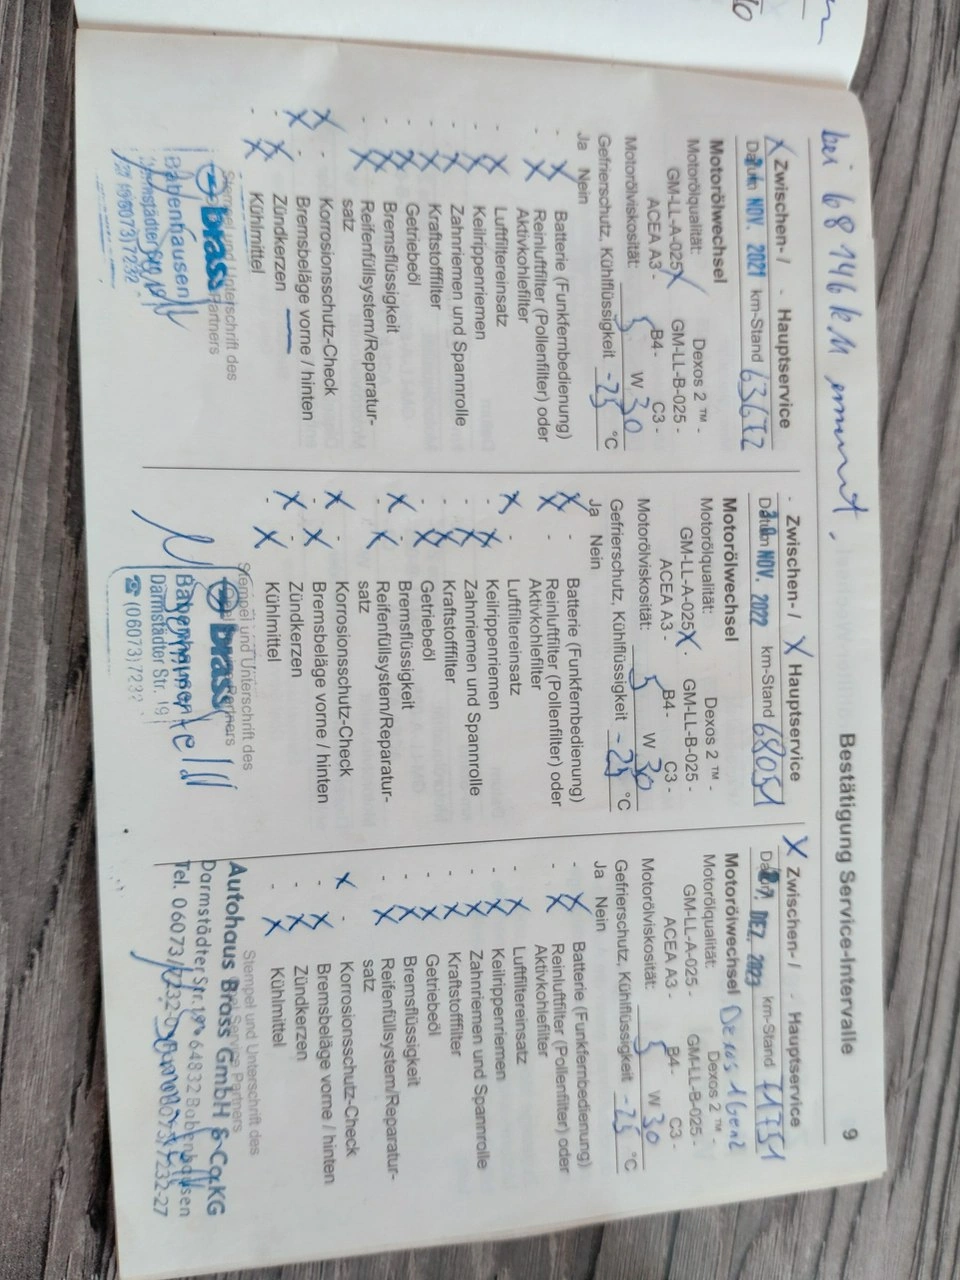 Bestätigung Service-Intervalle 9
bei 68 146 km
X Zwischen- / - Hauptservice
Datum NOV. 2021 km-Stand
Motorölwechsel
Motorölqualität: Dexos 2 ™ -
GM-LL-A-025 X GM-LL-B-025 -
ACEA A3 - B4 - C3 -
Motorölviskosität: 5 W 30
Gefrierschutz, Kühlflüssigkeit -25 °C
Ja Nein
- X Batterie (Funkfernbedienung)
- X Reinluftfilter (Pollenfilter) oder
Aktivkohlefilter
- X Luftfiltereinsatz
- X Keilrippenriemen
- X Zahnriemen und Spannrolle
- X Kraftstofffilter
- X Getriebeöl
- X Bremsflüssigkeit
- X Reifenfüllsystem/Reparatur-
satz
X - Korrosionsschutz-Check
X - Bremsbeläge vorne / hinten
- X Zündkerzen
- X Kühlmittel
Stempel und Unterschrift des
Partners
brass
Babenhausen
Darmstädter
- Zwischen- / X Hauptservice
Datum NOV. 2022 km-Stand 68051
Motorölwechsel
Motorölqualität: Dexos 2 ™ -
GM-LL-A-025 X GM-LL-B-025 -
ACEA A3 - B4 - C3 -
Motorölviskosität: 5 W 30
Gefrierschutz, Kühlflüssigkeit -25 °C
Ja Nein
X - Batterie (Funkfernbedienung)
X - Reinluftfilter (Pollenfilter) oder
Aktivkohlefilter
X - Luftfiltereinsatz
- X Keilrippenriemen
- X Zahnriemen und Spannrolle
- X Kraftstofffilter
- X Getriebeöl
X - Bremsflüssigkeit
- X Reifenfüllsystem/Reparatur-
satz
X - Korrosionsschutz-Check
- X Bremsbeläge vorne / hinten
X - Zündkerzen
- X Kühlmittel
Stempel und Unterschrift des
Partners
brass
Babenhausen
Darmstädter Str. 19
☎ (06073) 723
X Zwischen- / - Hauptservice
Datum DEZ. 2023 km-Stand 71751
Motorölwechsel Dexos 1 Gen2
Motorölqualität: Dexos 2 ™ -
GM-LL-A-025 - GM-LL-B-025 -
ACEA A3 - B4 - C3 -
Motorölviskosität: 5 W 30
Gefrierschutz, Kühlflüssigkeit -25 °C
Ja Nein
- X Batterie (Funkfernbedienung)
- X Reinluftfilter (Pollenfilter) oder
Aktivkohlefilter
- X Luftfiltereinsatz
- X Keilrippenriemen
- X Zahnriemen und Spannrolle
- X Kraftstofffilter
- X Getriebeöl
- X Bremsflüssigkeit
- X Reifenfüllsystem/Reparatur-
satz
X - Korrosionsschutz-Check
- X Bremsbeläge vorne / hinten
- X Zündkerzen
- X Kühlmittel
Stempel und Unterschrift des
Service Partners
Autohaus Brass GmbH & Co KG
Darmstädter Str. 19 64832 Babenhausen
Tel. 06073/7232-0